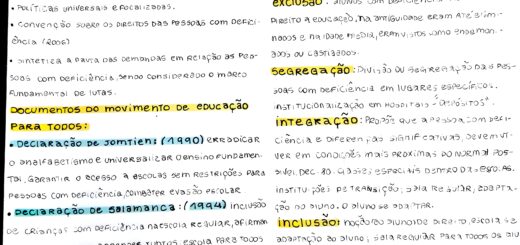 • Políticas universais e focalizadas.
• Convenção sobre os direitos das pessoas com defici-
ência (2006)
• Sintetiza a pauta das demandas em relação as pes-
soas com deficiência, sendo considerado o marco
fundamental de lutas.
Documentos do movimento de educação
para todos:
• Declaração de Jomtien: (1990) erradicar
o analfabetismo e universalizar o ensino fundamen-
tal, garantir o acesso a escolas sem restrições para
pessoas com deficiência, combater evasão escolar
• Declaração de Salamanca: (1994) inclusão
de crianças com deficiência na escola regular, afirmam
juntos, escola para todos
exclusão: alunos com deficiência
direito a educação, na antiguidade eram até elimi-
nados e na idade média, eram vistos como endemon.
ados ou castigados.
Segregação: Divisão ou segregação das pes-
soas com deficiência em lugares específicos.
Institucionalização em hospitais "depósitos".
Integração: Propõe que a pessoa com defi-
ciência e diferenças significativas, devem vi-
ver em condições mais próximas do normal pos-
sível. Dec. 80. Classes especiais dentro da esco. As.
instituições de transição; sala regular, adapta-
ção no aluno. O aluno se adaptar.
inclusão: noção do aluno de direito, escola se
adaptação ao aluno; sala regular para todos os alu